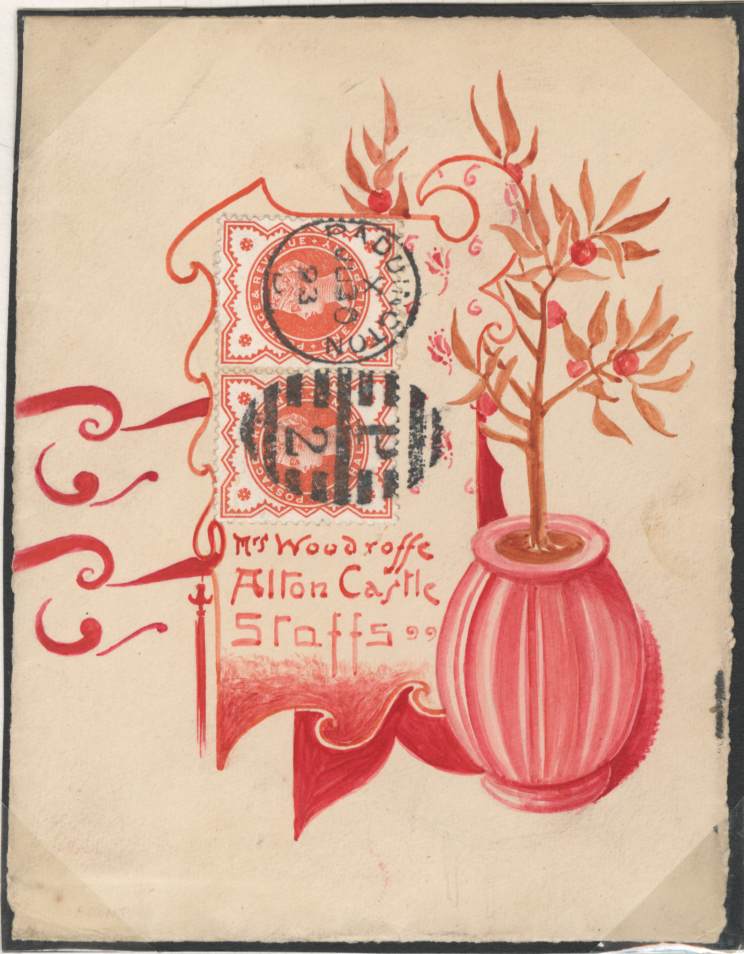 PADDINGTON
X
JU 30
93
POSTAGE & REVENUE
POSTAGE
HALF
2
Mrs Woodroffe
Alton Castle
Staffs